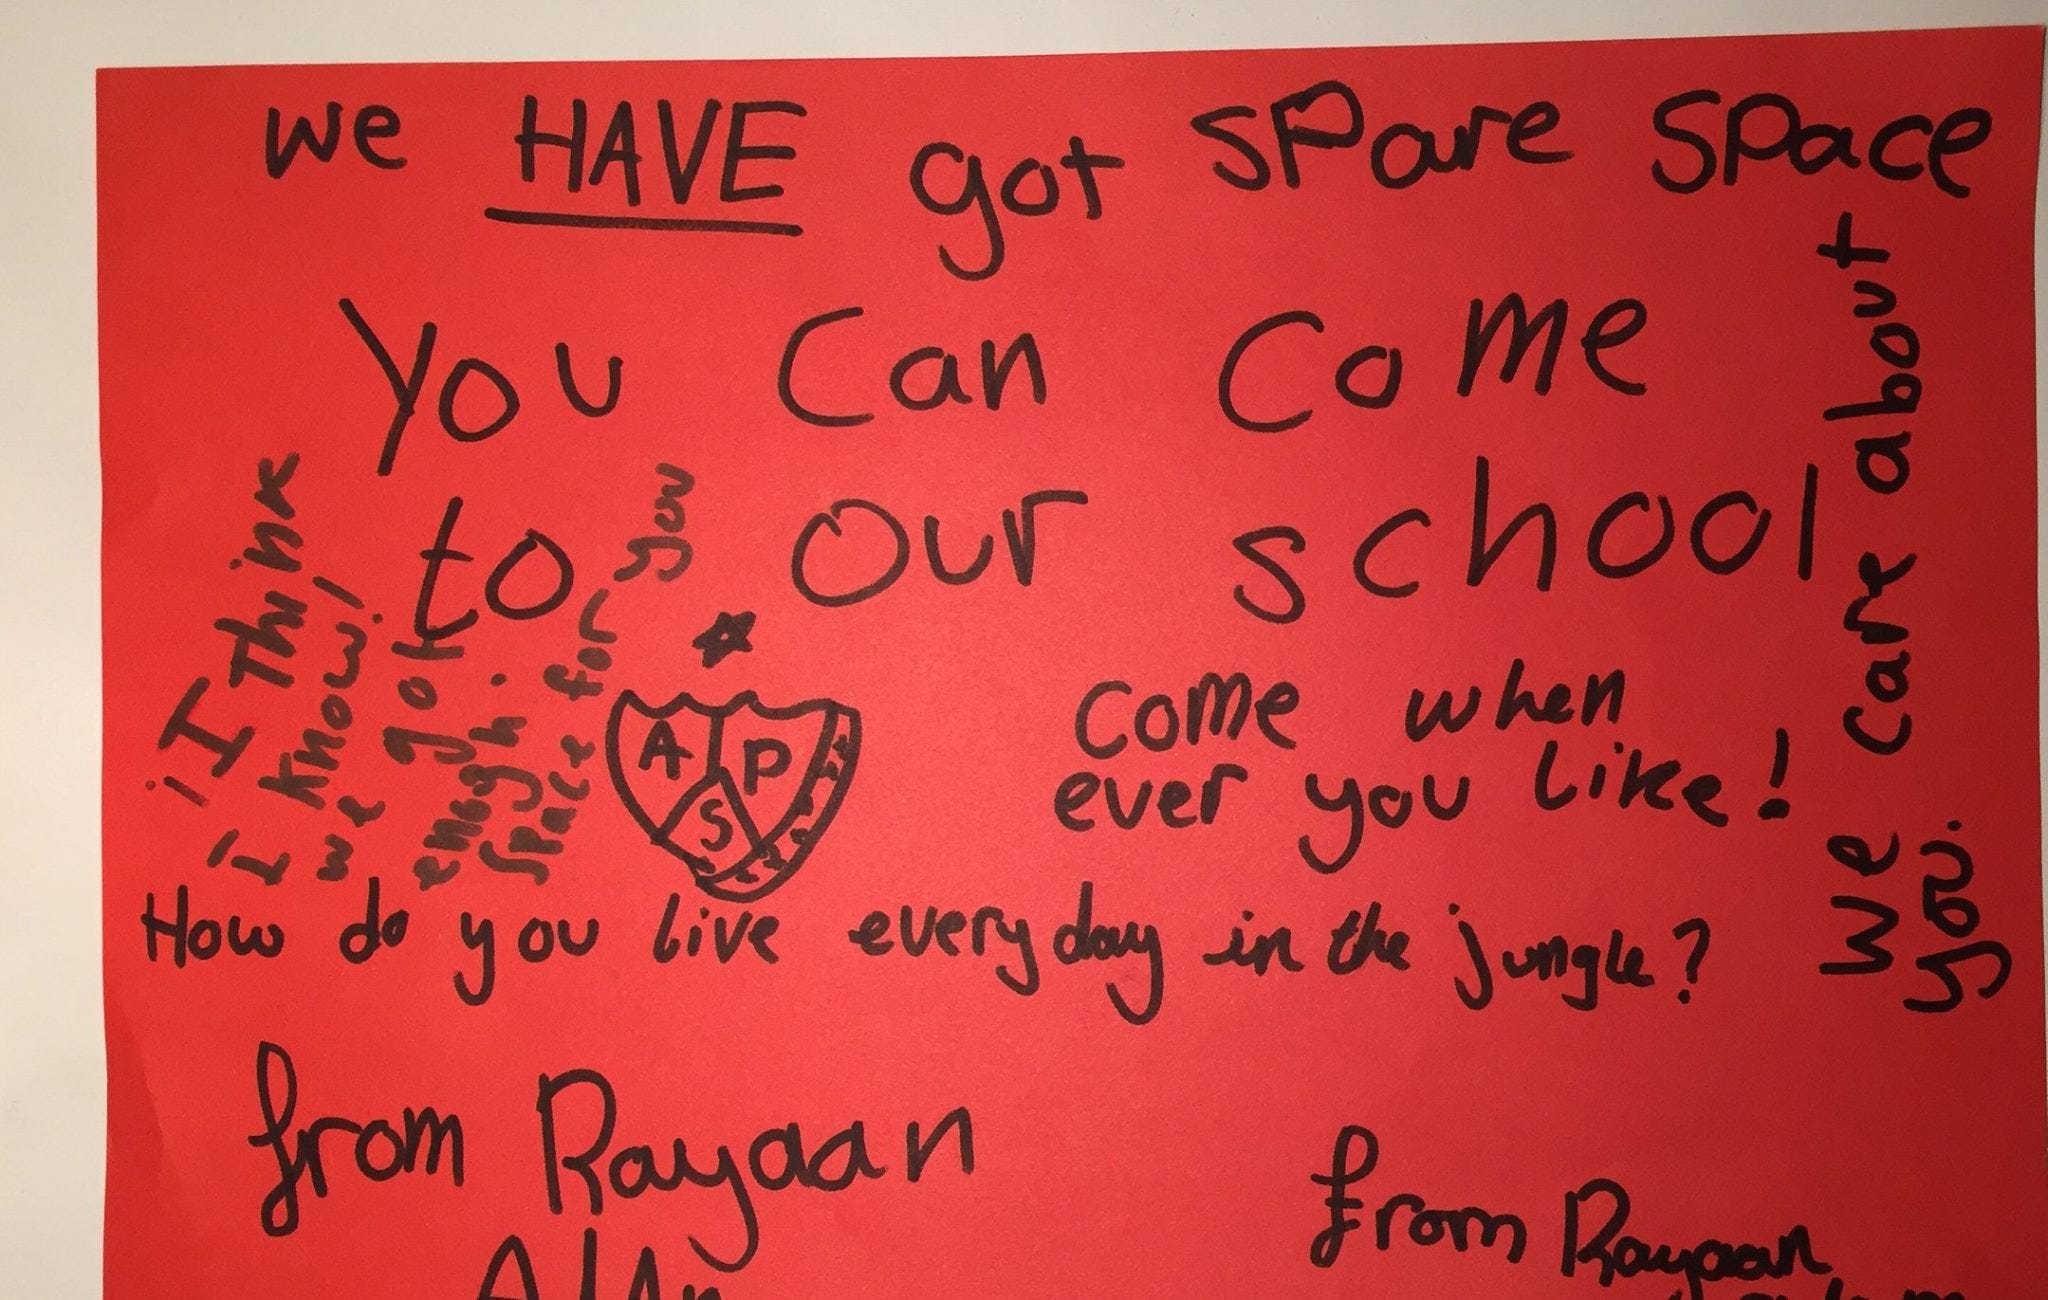 we HAVE got spare space
You can come
to our school
come when
ever you like!
We care about
you.
¡I Think
I know!
we got
enogh.
space for you
A P
S
How do you live everyday in the jungle?
from Rayaan
from Rayaan